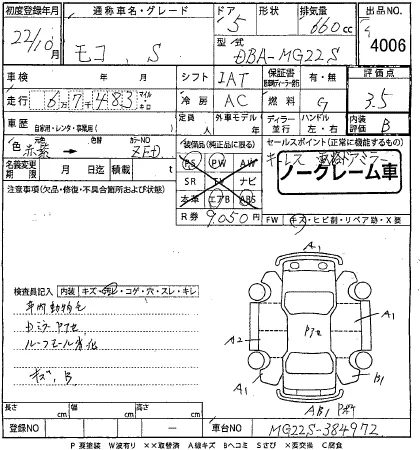 初度登録年月 通称車名・グレード ドア 形状 排気量 出品NO
22/10月 モコ、S 5 660cc
型式 DBA-MG22S 4006
車検 年 月 シフト IAT 保証書 有・無 評価点
走行 6 7 483 マイル キロ 冷房 AC 燃料 G 3.5
車歴 自家用・レンタ・事業用( ) 定員 人 外車モデル 年 ディーラー 並行 ハンドル 左・右 内装評価 B
色 元色 赤紫 → カラーNO ZED 装備品(純正品に限る) セールスポイント(正常に機能するもの)
PS PW AW キーレス 電格ドアミラー
名義変更期限 月 日迄 積載 t SR TV ナビ ノークレーム車
注意事項(欠品・修復・不具合箇所および状態) 本革 エアB ABS
R券 9,050円 FW キズ・ヒビ割・リペア跡・X要
A1
検査員記入 内装 キズ・汚レ・コゲ・穴・スレ・キレ
車内動物毛
ルーフモール劣化
キズ、B
A2 A1
A1 B1
AB1
長さ cm 幅 cm 高さ cm
登録NO ― 車台NO MG22S-384972
P 要塗装 W波有り ××取替済 A線キズ Bヘコミ Sさび ×要交換 C腐食